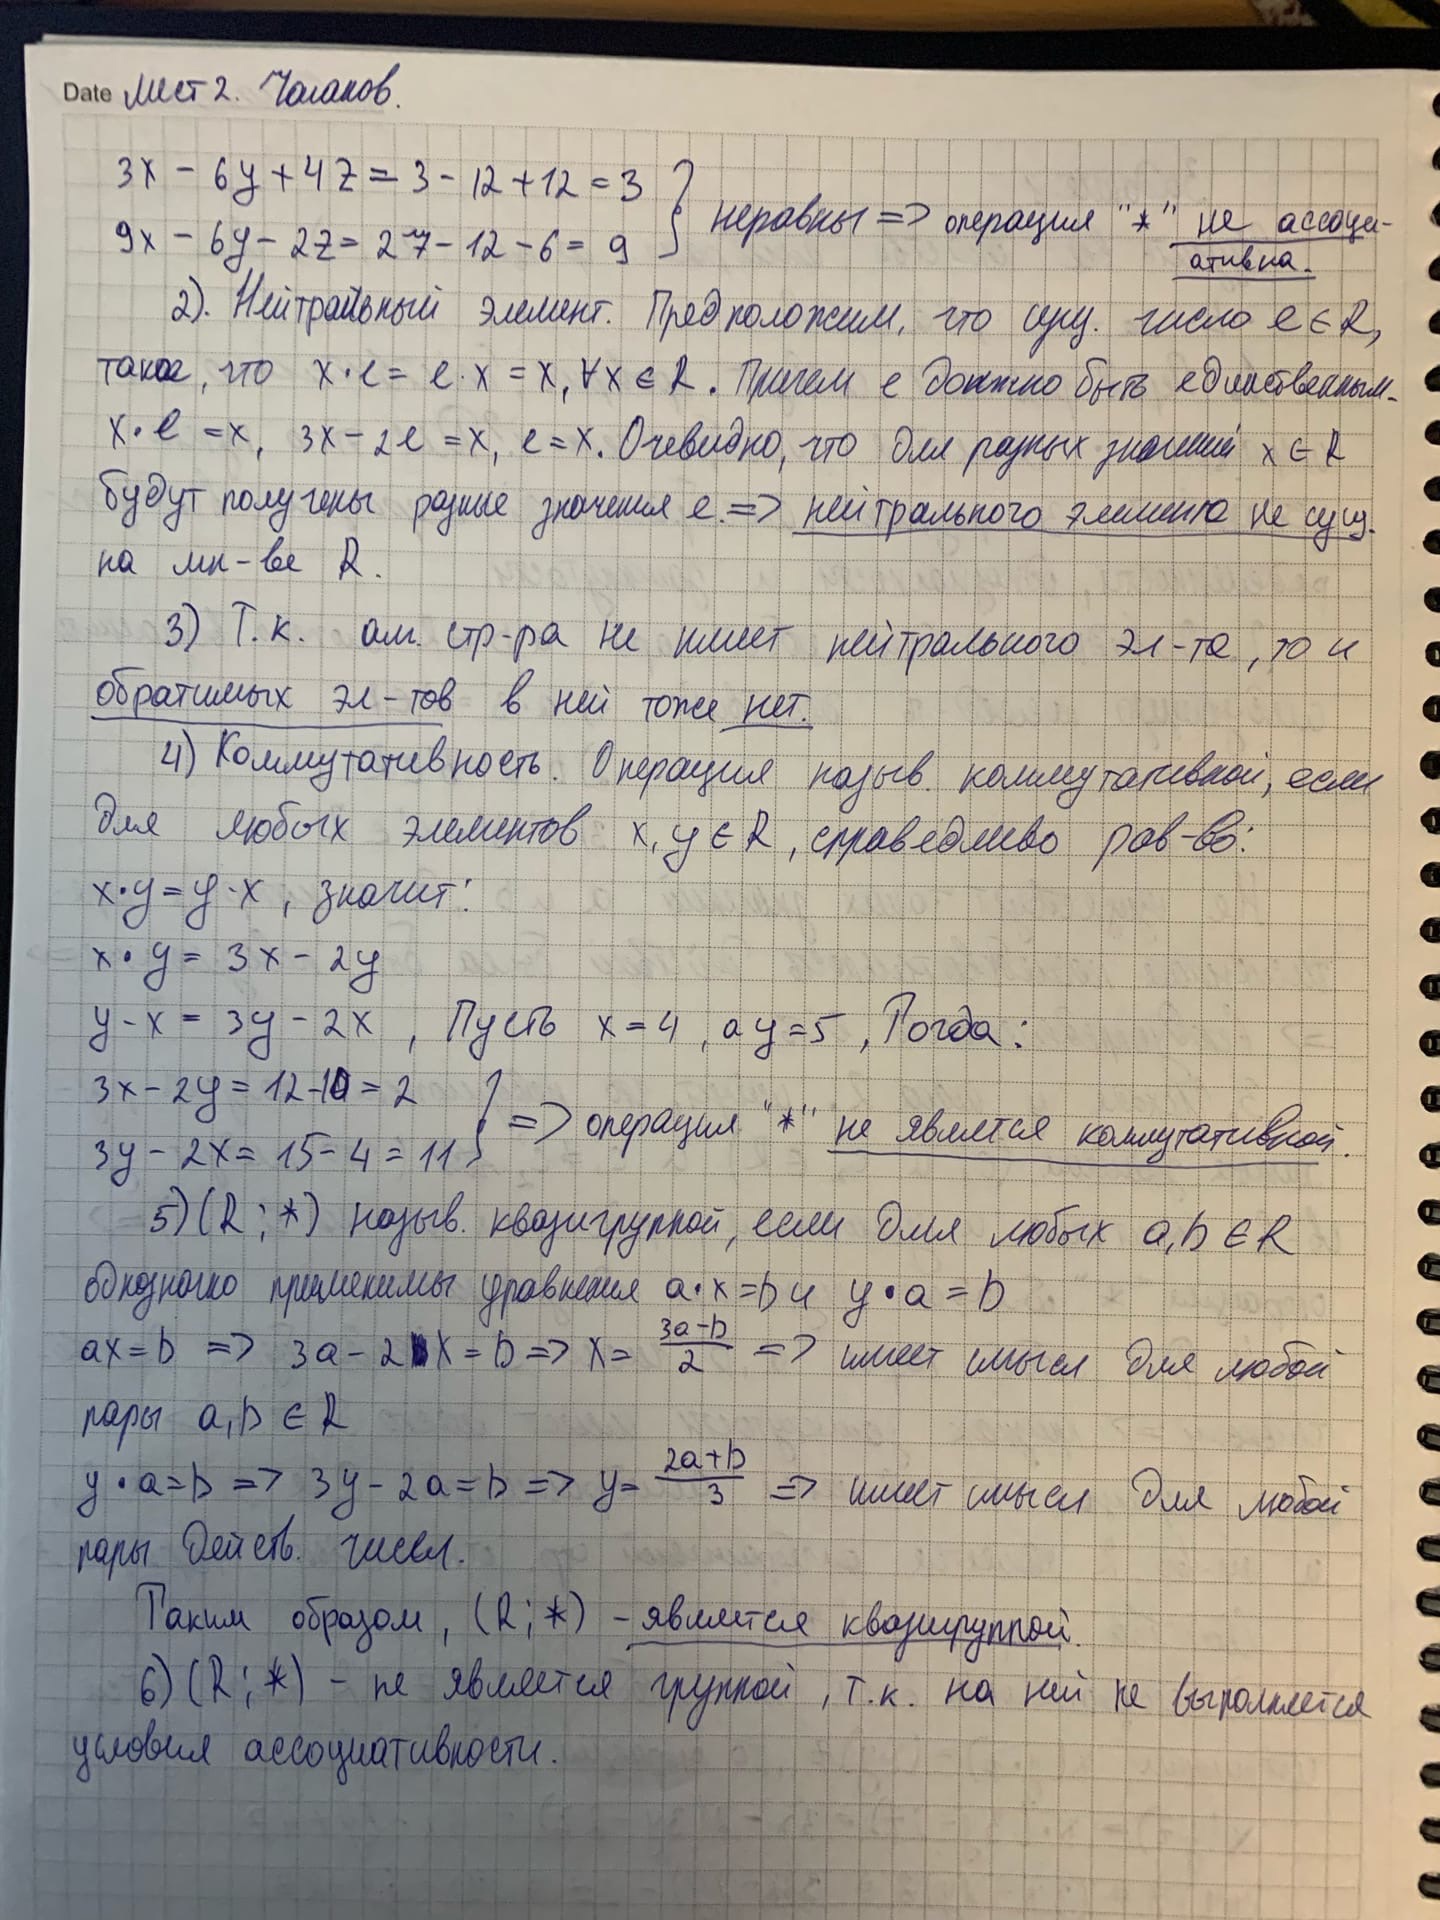 Date Лист 2. Чапаков.
3x - 6y + 4z = 3 - 12 + 12 = 3
9x - 6y - 2z = 27 - 12 - 6 = 9 } неравны => операция "*" не ассоци-
ативна.
2). Нейтральный элемент. Предположим, что сущ. число e ∈ R,
такое, что x·e = e·x = x, ∀x ∈ R. Причем e должно быть единственным.
x·e = x, 3x - 2e = x, e = x. Очевидно, что для разных значений x ∈ R
будут получены разные значения e. => нейтрального элемента не сущ.
на мн-ве R.
3) Т.к. ал. стр-ра не имеет нейтрального эл-та, то и
обратимых эл-тов в ней тоже нет.
4) Коммутативность. Операция назыв. коммутативной, если
для любых элементов x, y ∈ R, справедливо рав-во:
x·y = y·x, значит:
x·y = 3x - 2y
y·x = 3y - 2x, Пусть x = 4, а y = 5, Тогда:
3x - 2y = 12 - 10 = 2
3y - 2x = 15 - 4 = 11 } => операция "*" не является коммутативной.
5) (R; *) назыв. квазигруппой, если для любых a, b ∈ R
однозначно применимы уравнения a·x = b и y·a = b
ax = b => 3a - 2x = b => x = (3a-b)/2 => имеет смысл для любой
пары a, b ∈ R
y·a = b => 3y - 2a = b => y = (2a+b)/3 => имеет смысл для любой
пары действ. чисел.
Таким образом, (R; *) - является квазигруппой.
6) (R; *) - не является группой, т.к. на ней не выполняется
условия ассоциативности.